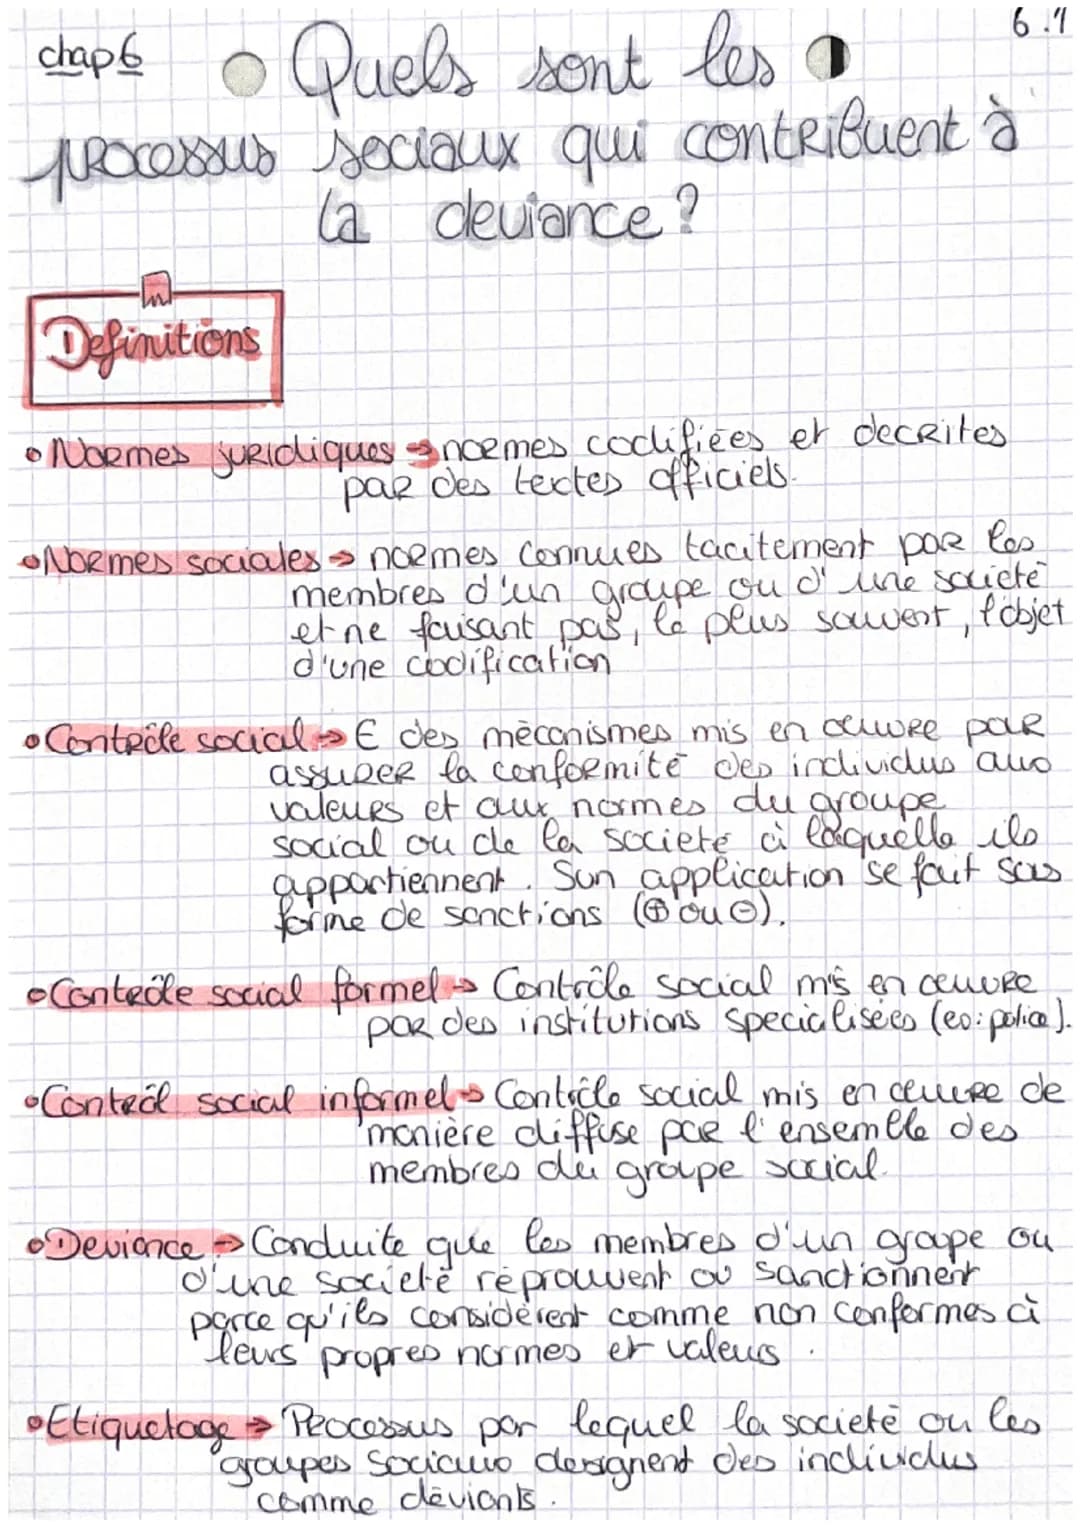 chap 6
6.1
Quels sont les
processus sociaux qui contribuent à
la deviance?
Definitions
• Normes juridiques → normes codifiées et decrites
par des textes officiels.
• Normes sociales → normes connues tacitement par les
membres d'un groupe ou d'une societé
et ne faisant pas, le plus souvent, l'objet
d'une codification
• Contrôle social → E des mécanismes mis en œuvre pour
assurer la conformité des individus aux
valeurs et aux normes du groupe
social ou de la societé à laquelle ils
appartiennent. Son application se fait sous
forme de sanctions (⊕ ou ⊖).
• Contrôle social formel → Contrôle social mis en œuvre
par des institutions specialisées (ex: police).
• Contrôl social informel → Contrôle social mis en œuvre de
manière diffuse par l'ensemble des
membres du groupe social.
• Deviance → Conduite que les membres d'un groupe ou
d'une societé réprouvent ou sanctionnent
parce qu'ils considèrent comme non conformes à
leurs propres normes et valeurs.
• Etiquetage → Processus par lequel la societé ou les
groupes sociaux designent des individus
comme déviants.